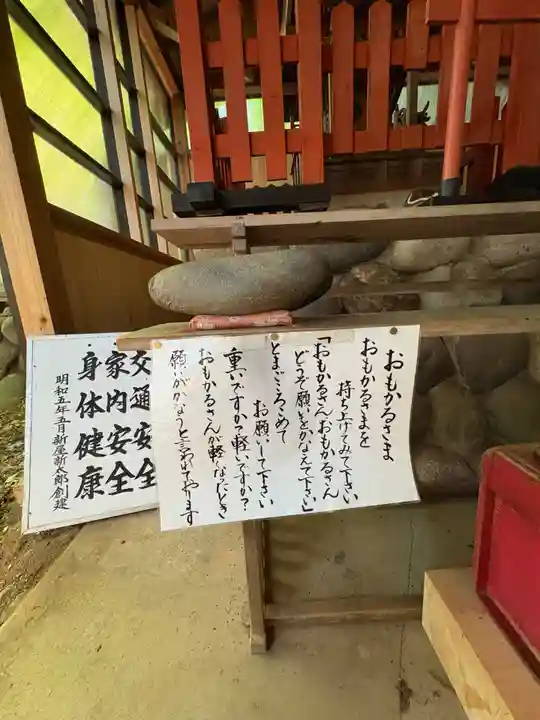 おもかるさま
おもかるさまを
持ち上げてみて下さい
「おもかるさんおもかるさん
どうぞ願いをかなえて下さい」
とまごころこめて
お願いして下さい
重いですか?軽いですか?
おもかるさんが軽くなったとき
願いがかなうと言われております
交通安全
家内安全
身体健康
明和五年五月新屋新太郎創建